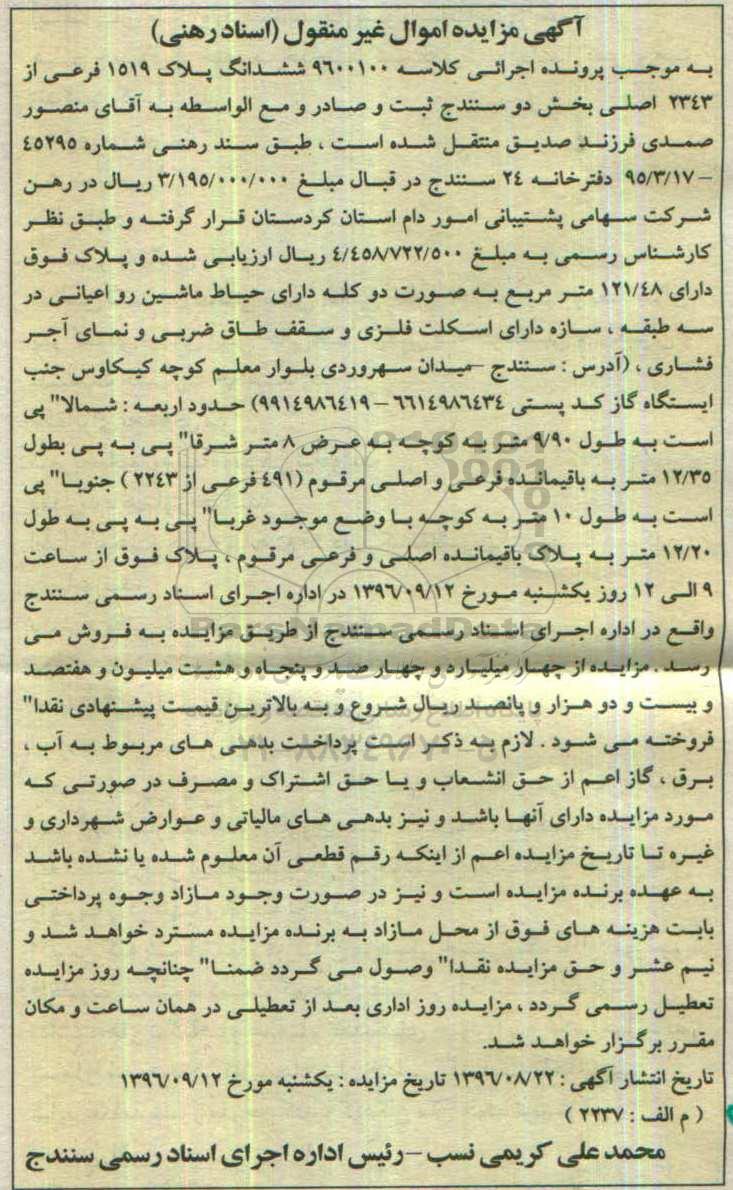 آگهی مزایده اموال غیر منقول (اسناد رهنی)
به موجب پرونده اجرائی کلاسه ۹۶۰۰۱۰۰ ششدانگ پلاک ۱۵۱۹ فرعی از
۲۳۴۳ اصلی بخش دو سنندج ثبت و صادر و مع الواسطه به آقای منصور
صمدی فرزند صدیق منتقل شده است ، طبق سند رهنی شماره ۴۵۲۹۵
-۹۵/۳/۱۷ دفترخانه ۲۴ سنندج در قبال مبلغ ۳/۱۹۵/۰۰۰/۰۰۰ ریال در رهن
شرکت سهامی پشتیبانی امور دام استان کردستان قرار گرفته و طبق نظر
کارشناس رسمی به مبلغ ۴/۴۵۸/۷۲۲/۵۰۰ ریال ارزیابی شده و پلاک فوق
دارای ۱۲۱/۴۸ متر مربع به صورت دو کله دارای حیاط ماشین رو اعیانی در
سه طبقه ، سازه دارای اسکلت فلزی و سقف طاق ضربی و نمای آجر
فشاری ، (آدرس : سنندج -میدان سهروردی بلوار معلم کوچه کیکاوس جنب
ایستگاه گاز کد پستی ۶۶۱۴۹۸۶۴۳۴ - ۹۹۱۴۹۸۶۴۱۹) حدود اربعه : شمالا" پی
است به طول ۹/۹۰ متر به کوچه به عرض ۸ متر شرقا" پی به پی بطول
۱۲/۳۵ متر به باقیمانده فرعی و اصلی مرقوم (۴۹۱ فرعی از ۲۲۴۳ ) جنوبا" پی
است به طول ۱۰ متر به کوچه با وضع موجود غربا" پی به پی به طول
۱۲/۲۰ متر به پلاک باقیمانده اصلی و فرعی مرقوم ، پلاک فوق از ساعت
۹ الی ۱۲ روز یکشنبه مورخ ۱۳۹۶/۰۹/۱۲ در اداره اجرای اسناد رسمی سنندج
واقع در اداره اجرای اسناد رسمی سنندج از طریق مزایده به فروش می
رسد . مزایده از چهار میلیارد و چهار صد و پنجاه و هشت میلیون و هفتصد
و بیست و دو هزار و پانصد ریال شروع و به بالاترین قیمت پیشنهادی نقدا"
فروخته می شود . لازم به ذکر است پرداخت بدهی های مربوط به آب ،
برق ، گاز اعم از حق انشعاب و یا حق اشتراک و مصرف در صورتی که
مورد مزایده دارای آنها باشد و نیز بدهی های مالیاتی و عوارض شهرداری و
غیره تا تاریخ مزایده اعم از اینکه رقم قطعی آن معلوم شده یا نشده باشد
به عهده برنده مزایده است و نیز در صورت وجود مازاد وجوه پرداختی
بابت هزینه های فوق از محل مازاد به برنده مزایده مسترد خواهد شد و
نیم عشر و حق مزایده نقدا" وصول می گردد ضمنا" چنانچه روز مزایده
تعطیل رسمی گردد ، مزایده روز اداری بعد از تعطیلی در همان ساعت و مکان
مقرر برگزار خواهد شد.
تاریخ انتشار آگهی : ۱۳۹۶/۰۸/۲۲ تاریخ مزایده : یکشنبه مورخ ۱۳۹۶/۰۹/۱۲
( م الف : ۲۲۳۷ )
محمد علی کریمی نسب -رئیس اداره اجرای اسناد رسمی سنندج
ParsNamadData